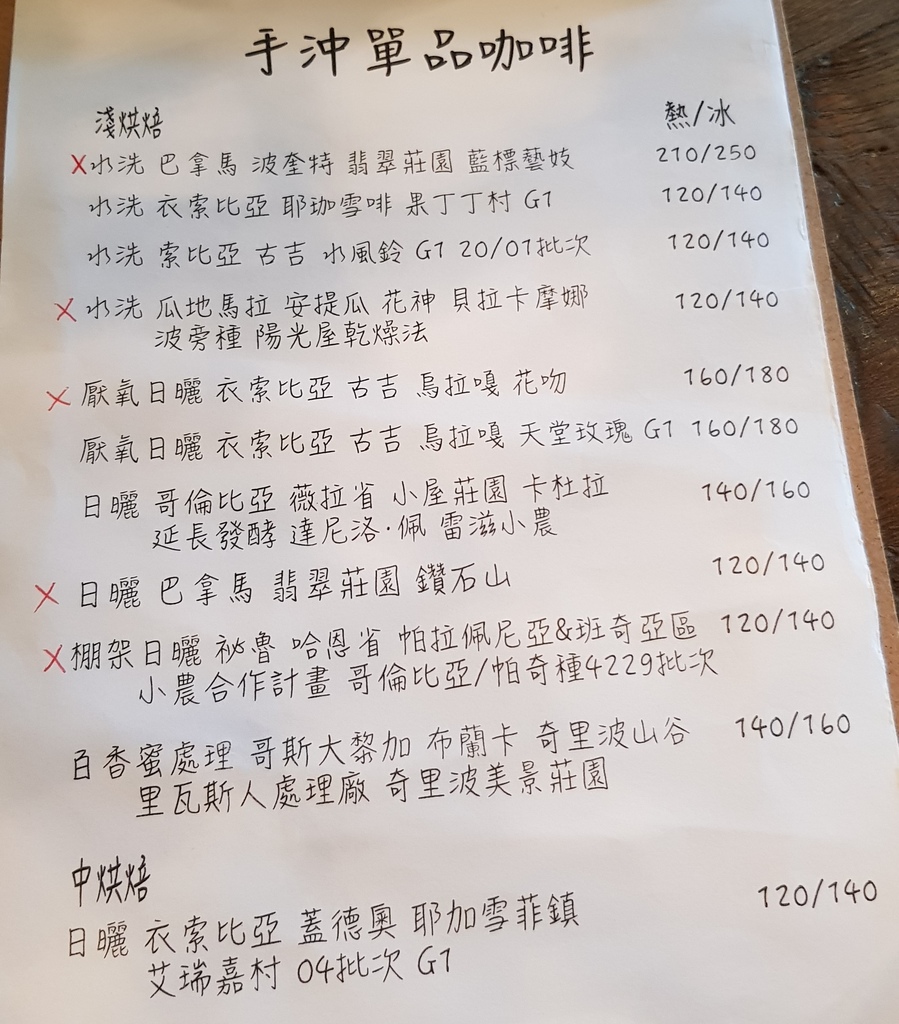 手沖單品咖啡
淺烘焙 熱/冰
X水洗 巴拿馬 波奎特 翡翠莊園 藍標藝妓 210/250
水洗 衣索比亞 耶珈雪啡 果丁丁村 G1 120/140
水洗 索比亞 古吉 水風鈴 G1 20/01批次 120/140
X 水洗 瓜地馬拉 安提瓜 花神 貝拉卡摩娜 120/140
波旁種 陽光屋乾燥法
X 厭氧日曬 衣索比亞 古吉 烏拉嘎 花吻 160/180
厭氧日曬 衣索比亞 古吉 烏拉嘎 天堂玫瑰 G1 160/180
日曬 哥倫比亞 薇拉省 小屋莊園 卡杜拉 140/160
延長發酵 達尼洛·佩 雷滋小農
X 日曬 巴拿馬 翡翠莊園 鑽石山 120/140
X棚架日曬 祕魯 哈恩省 帕拉佩尼亞&班奇亞區 120/140
小農合作計畫 哥倫比亞/帕奇種4229批次
百香蜜處理 哥斯大黎加 布蘭卡 奇里波山谷 140/160
里瓦斯人處理廠 奇里波美景莊園
中烘焙
日曬 衣索比亞 蓋德奧 耶加雪菲鎮 120/140
艾瑞嘉村 04批次 G1